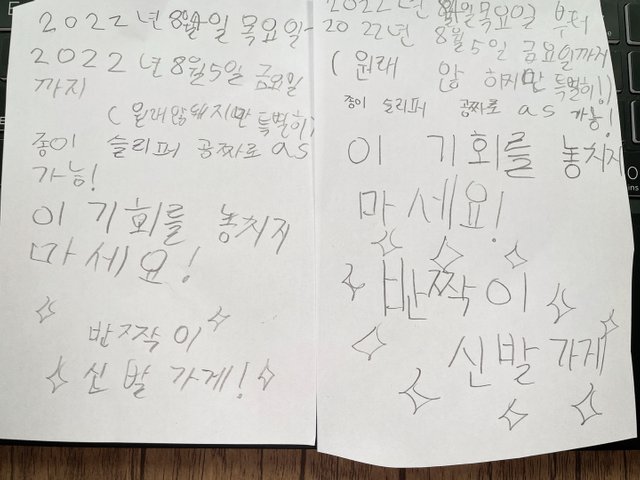 2022년 8월4일 목요일~
2022년 8월5일 금요일
까지
(원래 않돼지만 특별히)
종이 슬리퍼 공짜로 as
가능!
이 기회를 놓치지
마세요!
반짝이
신발 가게!
2022년 8월4일목요일 부터
2022년 8월5일 금요일까지
(원래 않 하지만 특별히!)
종이 슬리퍼 공짜로 as 가능!
이 기회를 놓치지
마세요!
반짝이
신발 가게